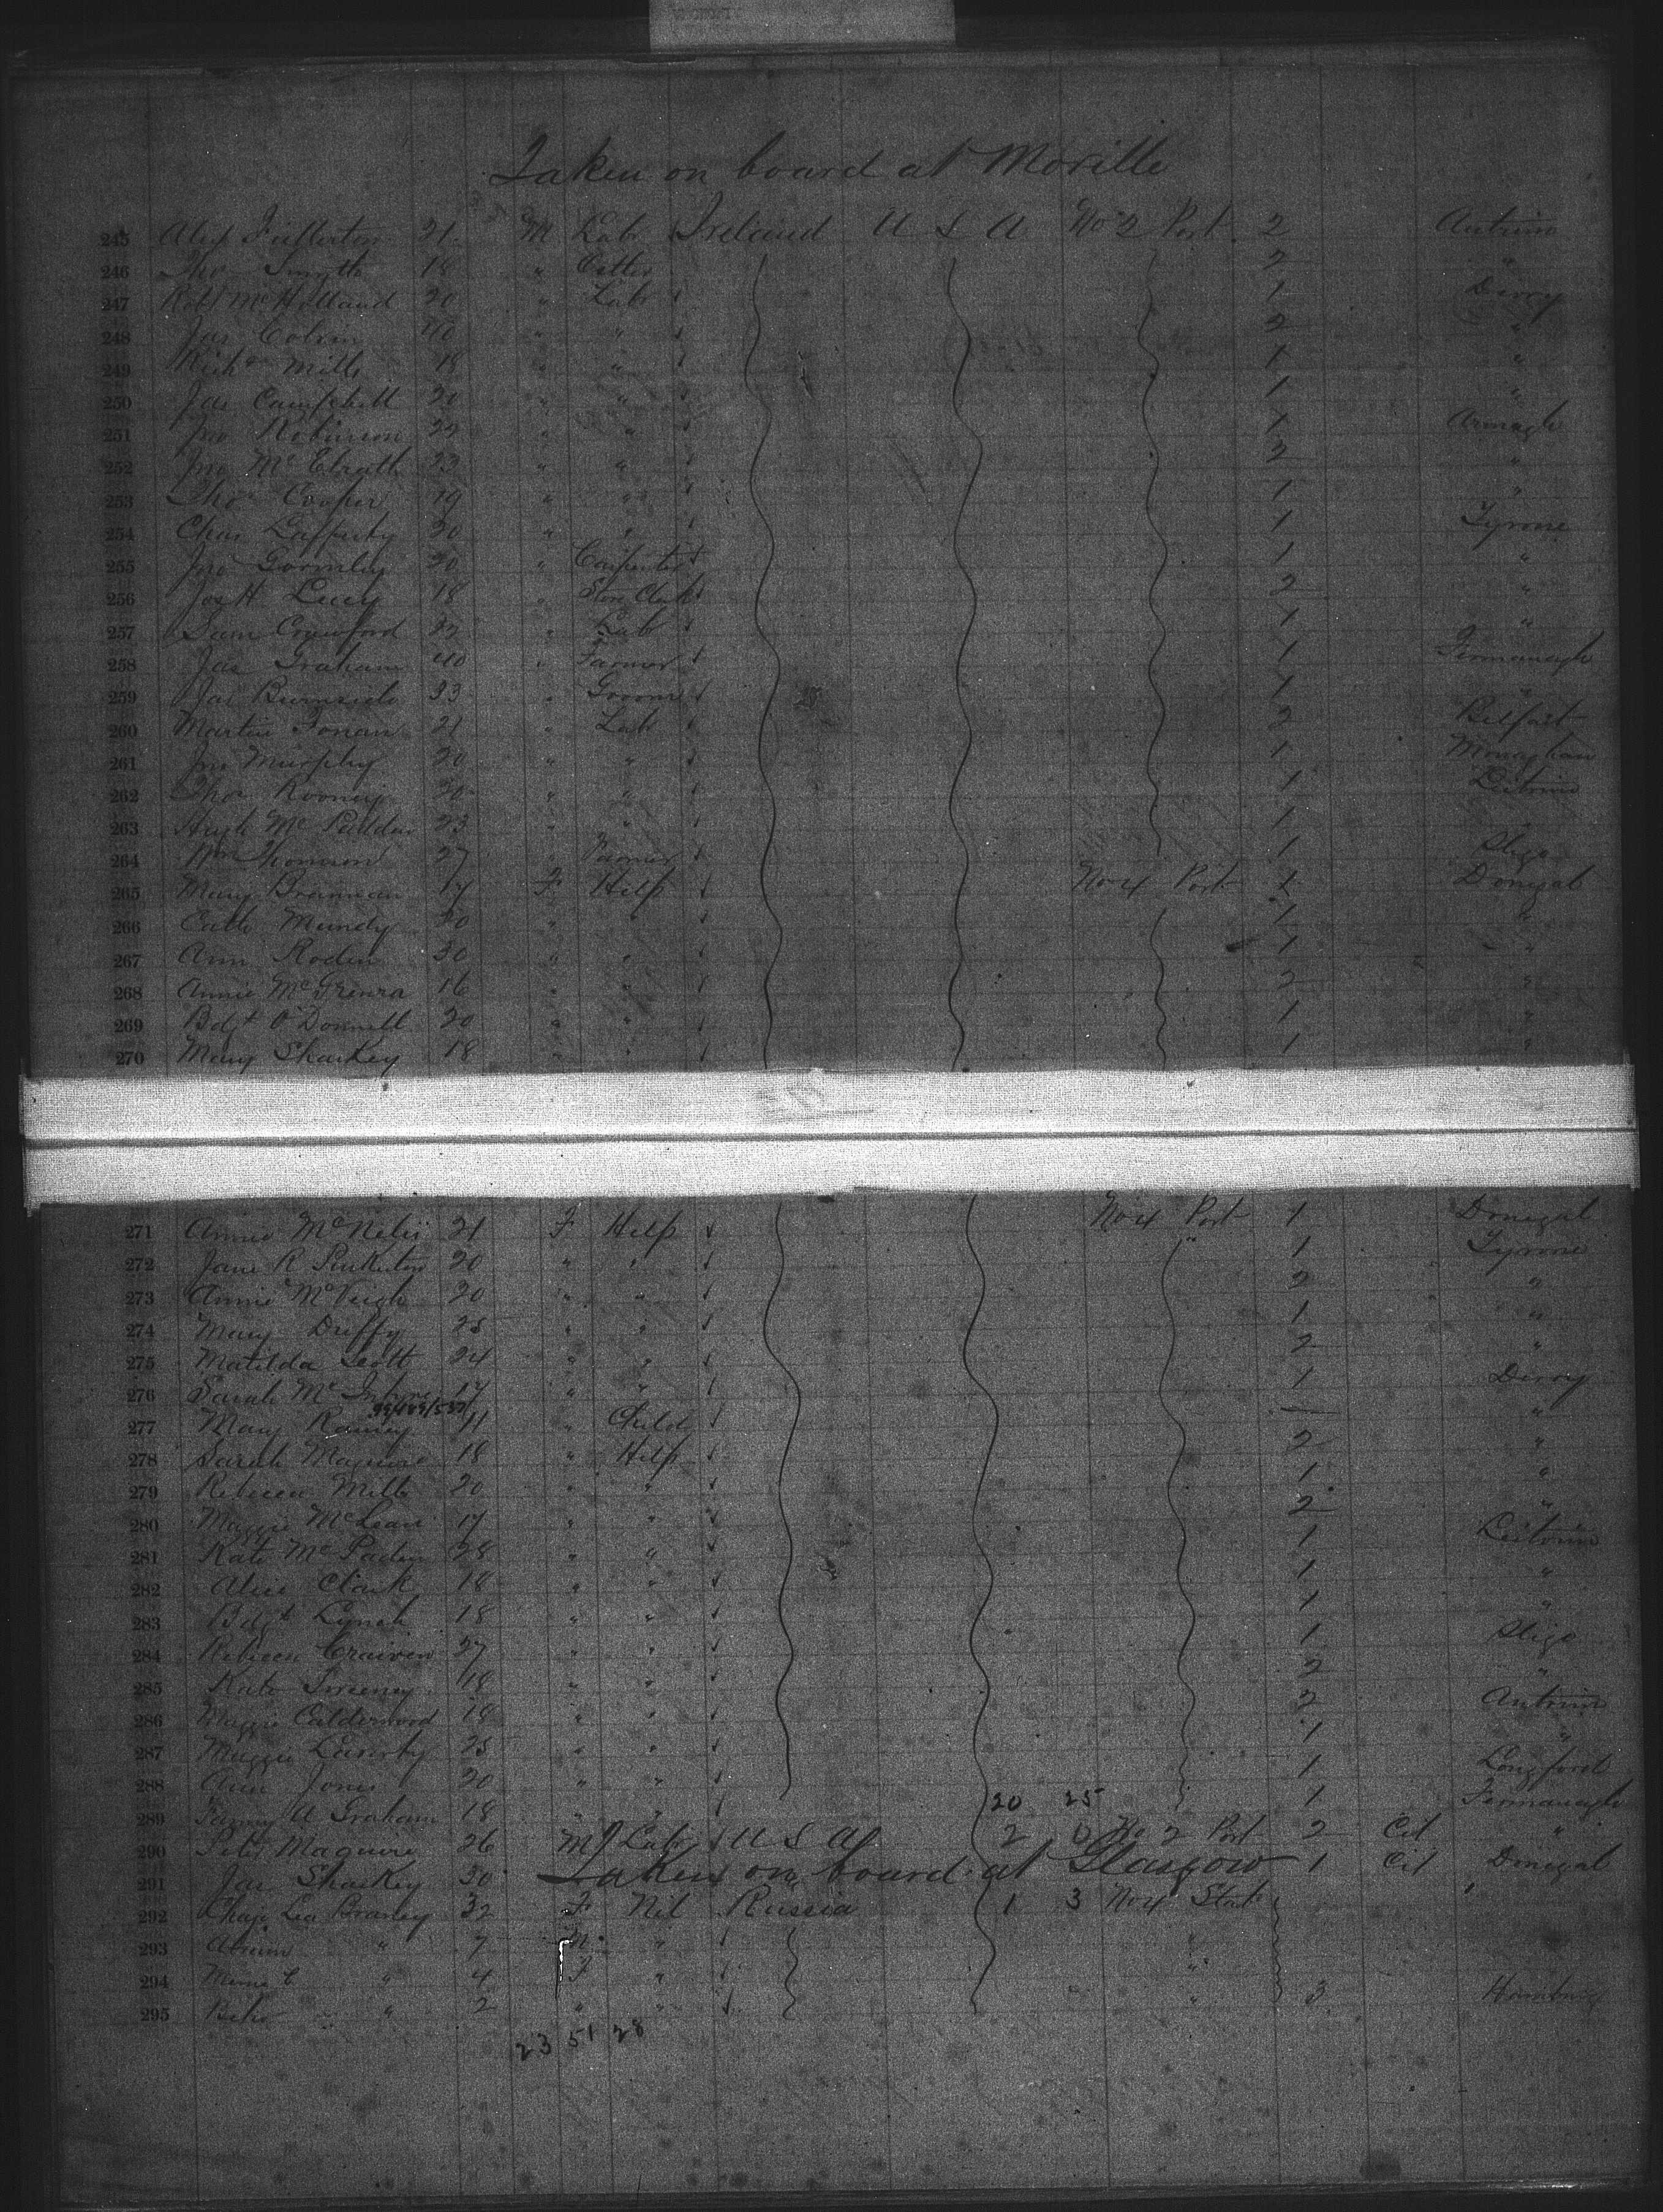 Taken on board at Moville
245 Alex Fullerton 21 M Lab Ireland U S A No 2 Port 2 Antrim
246 Thos Smyth 18 " 2 "
247 Robt McHolland 20 " Lab 1 Derry
248 Jas Colvin 40 " " 2 "
249 Richd Mills 18 " " 1 "
250 Jas Campbell 21 " " 1 "
251 Jno Robinson 22 " " 1 Armagh
252 Jno McElrath 23 " " 2 "
253 Thos Cooper 19 " " 1 "
254 Chas Lafferty 20 " " 1 Tyrone
255 Jno Gormley 20 " Carpenter 1 "
256 Jos H Lucy 18 " Store Clerk 2 "
257 Sam Crawford 32 " Lab 1 "
258 Jas Graham 40 " Farmer 1 Fermanagh
259 Jas Burnside 33 " Groom 1 "
260 Martin 21 " Lab 2 Belfast
261 Jno Murphy 20 " " 1 Monaghan
262 Thos Rooney 30 " " 1 Leitrim
263 Hugh Mc 23 " " 1 "
264 Wm Thomson 27 " Farmer 1 Sligo
265 Mary Brannan 17 F Help No 4 Port 1 Donegal
266 Cath Mundy 20 " " 1 "
267 Ann Roden 30 " " 1 "
268 Annie McGrenra 16 " " 2 "
269 Bdgt O'Donnell 20 " " 1 "
270 Mary Sharkey 18 " " 1 "
271 Annie McNelis 21 F Help No 4 Port 1 Donegal
272 Jane R Pinkerton 20 " " " 1 Tyrone
273 Annie McVeigh 20 " " 2 "
274 Mary Duffy 25 " " 1 "
275 Matilda Scott 24 " " 2 "
276 Sarah McIntyre 17 " " 1 Derry
277 Mary Rainey 11 " Child — "
278 Sarah Maguire 18 " Help 2 "
279 Rebecca Mills 20 " " 1 "
280 Maggie McLean 17 " " 2 "
281 Kate McPaden 28 " " 1 Leitrim
282 Alice Clark 18 " " 1 "
283 Bdgt Lynch 18 " " 1 "
284 Rebecca Craiven 27 " " 1 Sligo
285 Kate Sweeney 18 " " 2 "
286 Maggie Calderwood 18 " " 2 Antrim
287 Maggie 25 " " 1 "
288 Ann Jones 20 " " 1 Longford
20 25
289 Fanny A Graham 18 " " 1 Fermanagh
290 Peter Maguire 26 M Lab U S A 2 0 No 2 Port 2 Cit "
291 Jas Sharkey 30 Taken on board at Glasgow 1 Cit Donegal
292 32 F Nil Russia 1 3 No 4 Starb
293 " 7 M " "
294 " 4 F " "
295 " 2 " " " 3 Hamburg
23 51 28